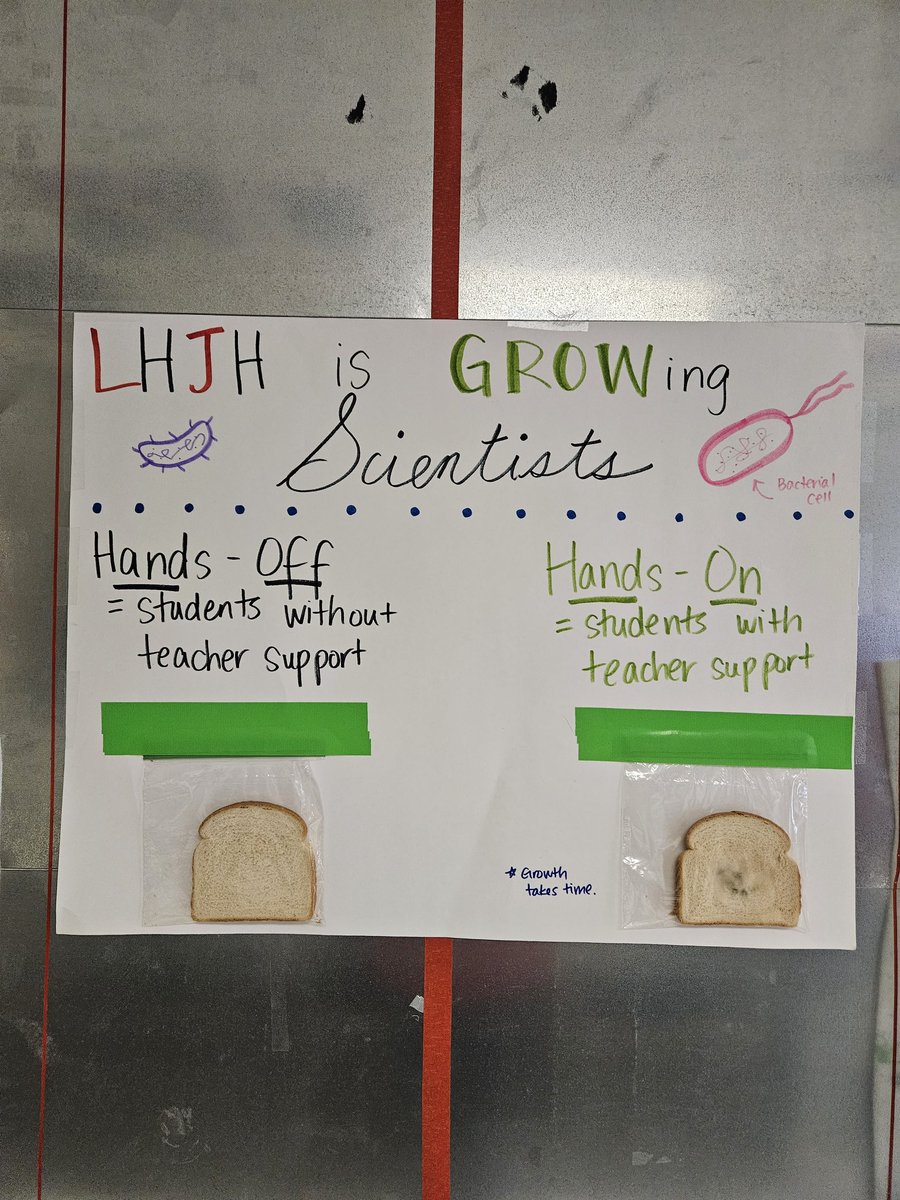 LHJH is GROWing
Scientists
Bacterial
cell
Hands - Off
= students without
teacher support
Hands - On
= students with
teacher support
* Growth
takes time.